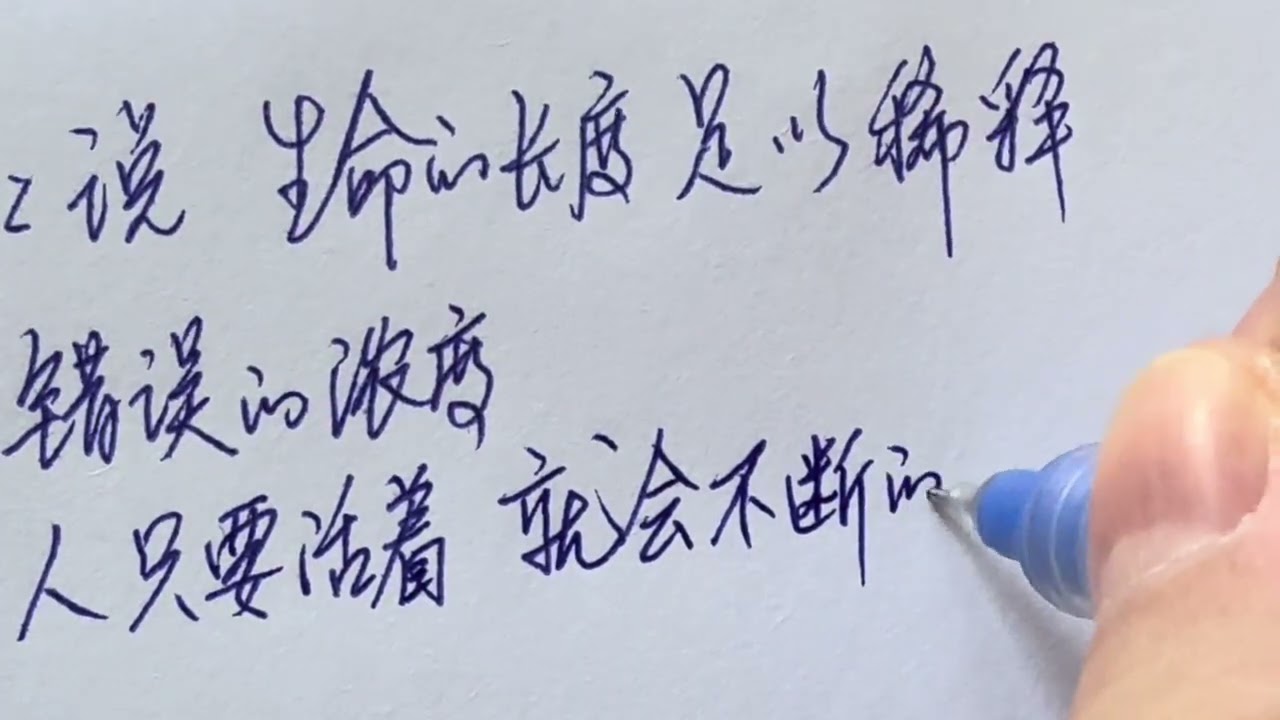 说 生命的长度足以稀释
错误的浓度
人只要活着 就会不断的